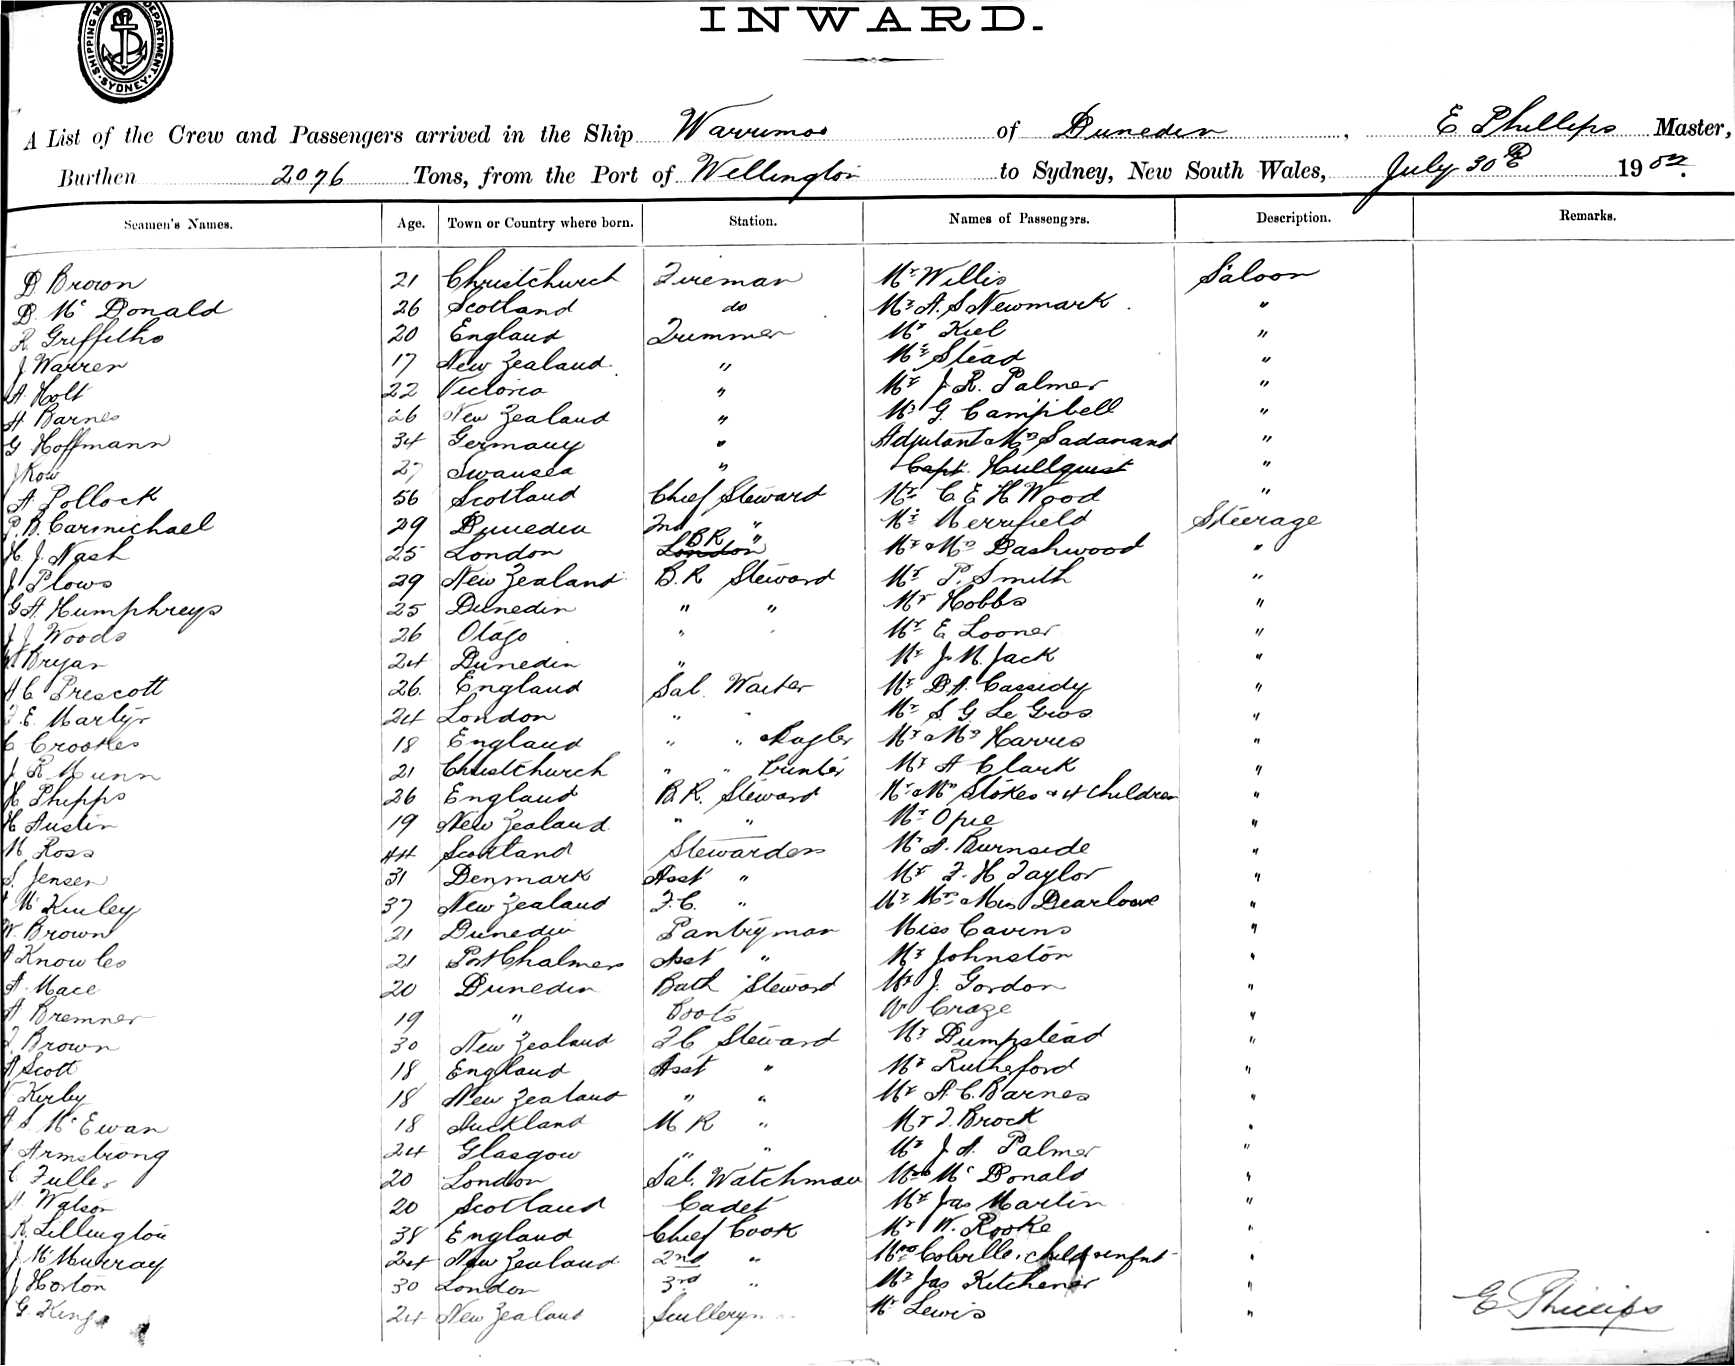 SHIPPING MASTER'S DEPARTMENT SYDNEY
INWARD.
A List of the Crew and Passengers arrived in the Ship Warrimoo of Dunedin, E Phillips Master,
Burthen 2076 Tons, from the Port of Wellington to Sydney, New South Wales, July 30th 1902.
Seamen's Names. Age. Town or Country where born. Station. Names of Passengers. Description. Remarks.
D Brown 21 Christchurch Fireman Mr Willis Saloon
D Mc Donald 26 Scotland do Mr A. S Newmark "
R Griffiths 20 England Trimmer Mr Kiel "
J Warren 17 New Zealand " Mr Stead "
A Holt 22 Victoria " Mr J. R. Palmer "
H Barnes 26 New Zealand " Mr G. Campbell "
G Hoffmann 34 Germany " Adjutant & Mrs Sadanand "
J Row 27 Swansea " Capt. Hullquist "
A Pollock 56 Scotland Chief Steward Mr C E H Wood "
P. B. Carmichael 29 Dunedin 2nd " Mr Merrifield Steerage
H J. Nash 25 London London B R " Mr & Mrs Dashwood "
J Plows 29 New Zealand B. R Steward Mr P. Smith "
G A Humphreys 25 Dunedin " " Mr Hobbs "
J J Woods 26 Otago " " Mr E Looner "
Bryan 24 Dunedin " Mr J. M. Jack "
A C Prescott 26. England Sal. Waiter Mr D A. Cassidy "
E. Martyr 24 London " " Mr S. G Le Gros "
C Crookes 18 England " " Bugler Mr & Mrs Harris "
J R Munn 21 Christchurch " " Printer Mr A Clark "
H Phipps 26 England B. R. Steward Mr & Mrs Stokes & 4 Children "
H Austin 19 New Zealand " " Mr Opie "
M Ross 44 Scotland Stewardess Mr A. Burnside "
S. Jensen 31 Denmark Asst " Mr F. H Taylor "
Mc Kinley 37 New Zealand F. C. " Mr Mrs & Miss Dearlove "
W. Brown 21 Dunedin Pantryman Miss Cavens "
A Knowles 21 Port Chalmers Asst " Mr Johnston "
A. Mace 20 Dunedin Bath Steward Mr J. Gordon "
A Bremner 19 " Boots Craze "
Brown 30 New Zealand F C Steward Mr Dumpstead "
A Scott 18 England Asst " Mr Rutheford "
Kirby 18 New Zealand " " Mr A. C. Barnes "
A S McEwan 18 Auckland M R " Mr T. Brock "
Armstrong 24 Glasgow " " Mr J A. Palmer "
C Fuller 20 London Sal. Watchman Mrs Mc Donald "
Watson 20 Scotland Cadet Mr Jas Martin "
R. Lillington 38 England Chief Cook Mr W. Rooke "
J McMurray 24 New Zealand 2nd " Mrs Colville, child & infnt "
J Horton 30 London 3rd " Mr Jas Kitchener "
G. King 24 New Zealand Scullery Mr Lewis "
E Phillips